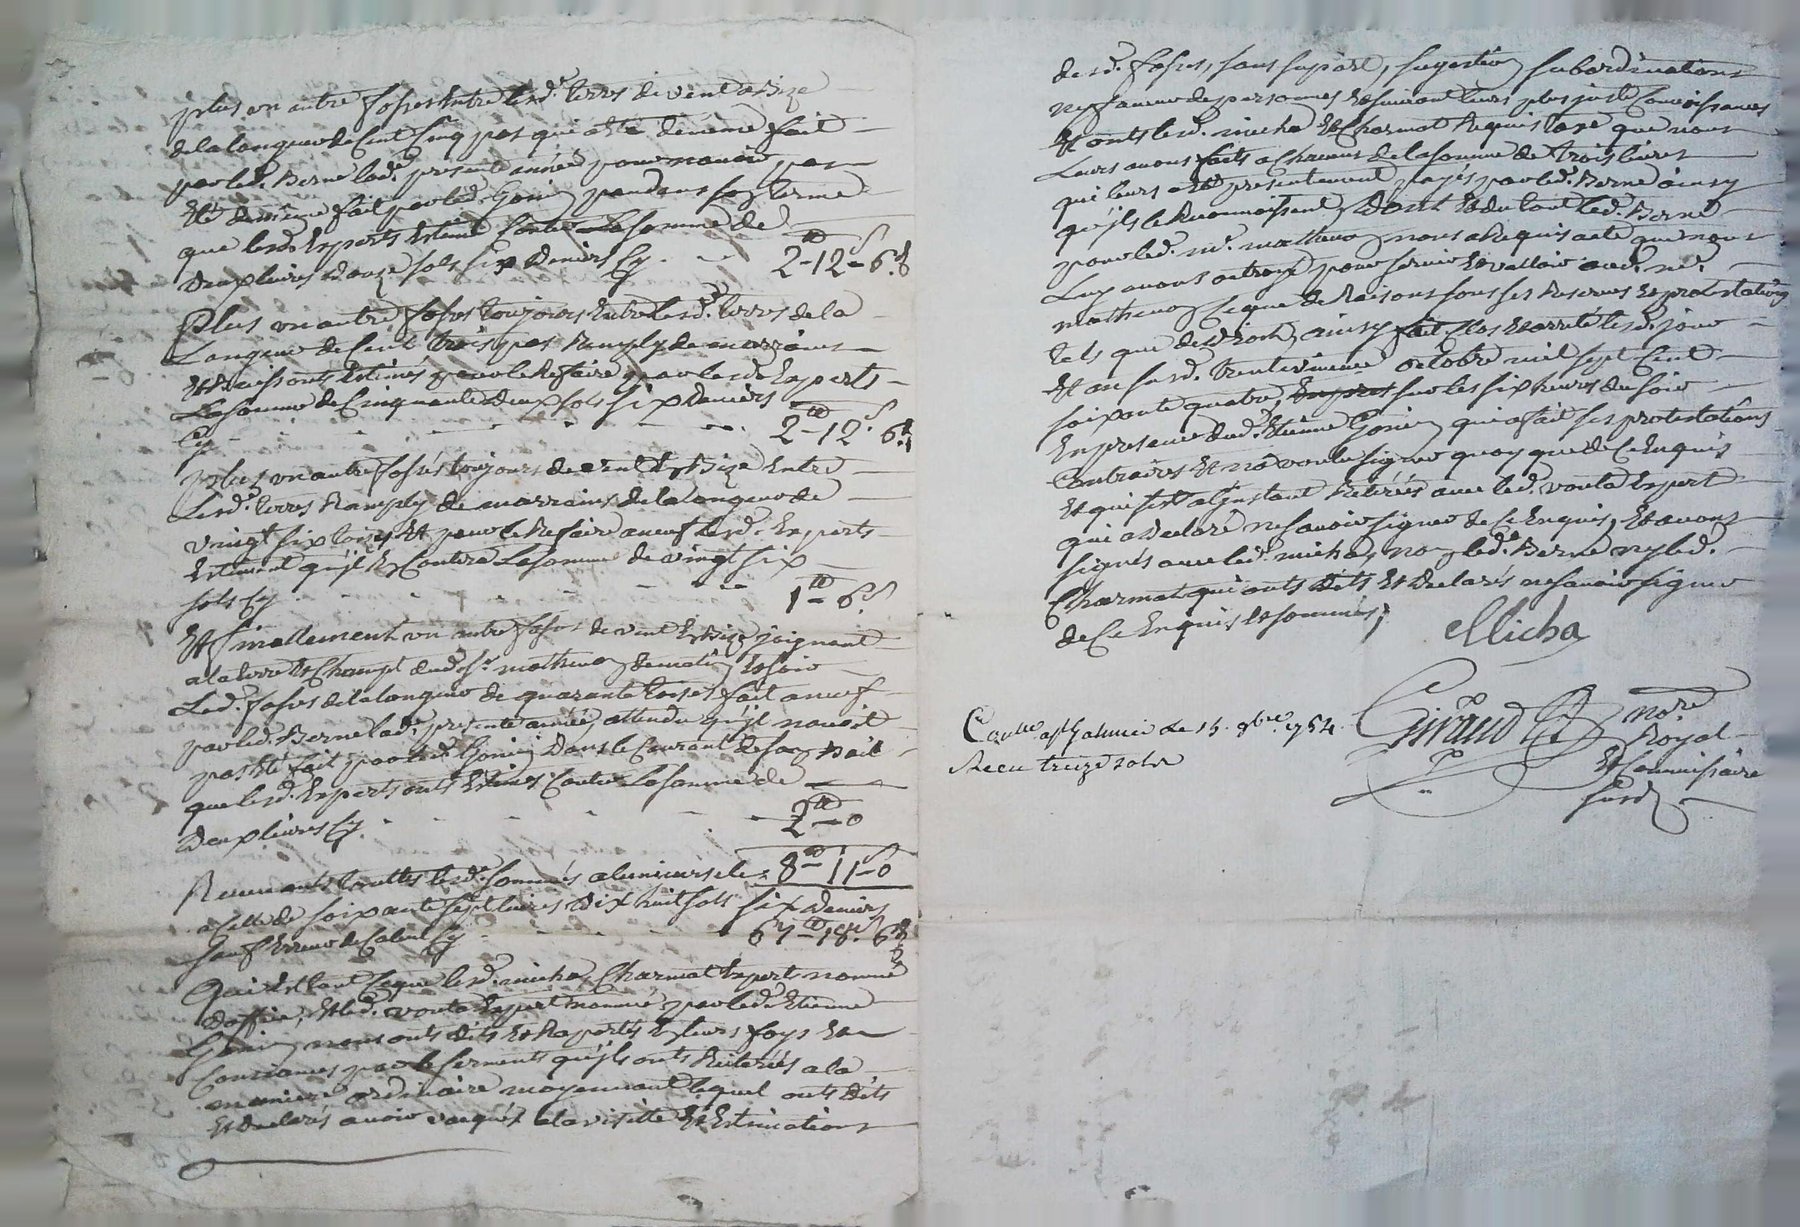 plus un autre fosses entre lesd. terres de vent a Bize
de la longueur de Cent Cinq pas qui a esté de même fait
par led. Berne lad. presente année pour navoir pas
eté de même fait par led. Gonin pendant son terme
que lesd. Experts Estime Contre La somme de
Deux livres Douze sols six Deniers Cy 2tt-12s-6d
Plus un autre fosses toujours Entre Lesd. terres de la
Longueur de Cent trois pas Remply de marrains
Estimés pour le Refaire par lesd. Experts
La somme de Cinquante Deux sols six Deniers
Cy 2tt-12s-6d
plus un autre fossés toujours de vent Et Bize Entre
Lesd. terres Remply de marrains de la longueur de
vingt six toizes Et pour le Refaire a neuf Lesd. Experts
Estiment qu'jl En Contera La somme de vingt six
sols Cy 1tt-6s
Et finallement un autre fosses de vent Et Bize joignant
a la terre Et Champt dud. sr. matheve de matin Et soir
Led. fosses de la longueur de quarante toizes fait a neuf
par led. Berne lad. presente année, attendu qu'jl navoit
pas été fait par led. Gonin Dans le Courant de son Bail
que lesd. Experts onts Estimés Contre La somme de
Deux livres Cy 2tt-0
8tt-11s-0
Revenants touttes lesd. sommes aluniverselle
a Celle de soixante sept livres Dix huit sols six Deniers
sauf Erreur de Calcul Cy 67tt-18s-6d
Qui Est tout Ce que lesd. micha, Charmat Expert nommé
Doffice, Et led. vouta Expert nommé par led. Etienne
Gonin nous onts dits Et Raportés En leurs foys Et
Consciences par le serments qu'jls onts Reiterés a la
maniere ordinaire moyennant lequel onts Dits
Et Declarés avoir vaqués a la visitte Et Estimations
desd. fosses, sans suport, sugestion subordinations
ny faveur de personnes Et suivant leurs plus juste Connoissances
Et onts lesd. micha Et Charmat Requis taxe que nous
Leurs avons faits a Chacuns de la somme de trois livres
qui leurs a eté presentement payés par led. Berne ainsy
qu'jls le Reconnoissent, Dont Et du tout led. Berne
pour led. sr. matheve nous a Requis acte que nous
Luy avons octroyé pour servir Et valloir aud. sr.
matheve Ce que de Raisons sous ses Reserves Et protestations
tels que de Droit, ainsy fait Clos Et arreté lesd. jour
Et an susd. trentunieme octobre mil sept Cent
soixante quatre, sur les six heures du soir
En presence dud. Etienne Gonin qui a fait ses protestations
Contraires Et n'a voulu signer quoy que de Ce Enquis
Et qui s'est a l'instant Retirés avec led. vouta Expert
qui a Declaré ne savoir signer de Ce Enquis, Et avons
signés avec led. micha, non led. Berne ny led.
Charmat qui onts Dits Et Declarés ne savoir signer
de Ce Enquis Et sommés,
Micha
Giraud nore
Royal
Et Commissaire
susd.
Conlle a st Galmier Le 15. 9bre. 1764.
Receu treize sols